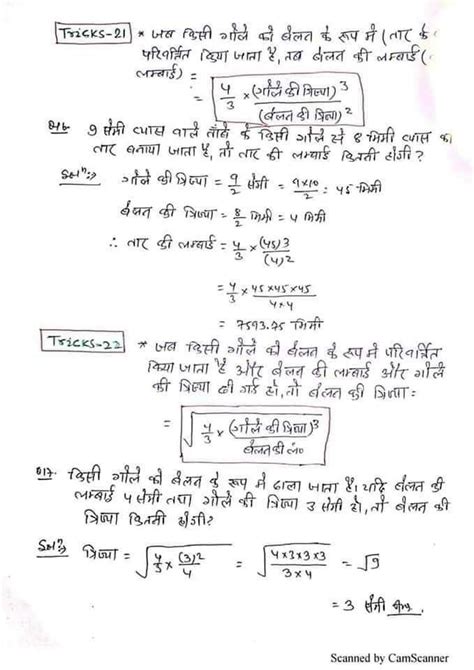 Tricks-21 * जब किसी गोले को बेलन के रूप में (तार के
परिवर्तित किया जाता है, तब बेलन की लम्बाई (
लम्बाई) = 4/3 × (गोले की त्रिज्या)³/(बेलन की त्रिज्या)²
9 सेमी व्यास वाले तांबे के किसी गोले से 8 मिमी व्यास का
तार बनाया जाता है, तो तार की लम्बाई कितनी होगी?
Solⁿ:→ गोले की त्रिज्या = 9/2 सेमी = 9×10/2 = 45 मिमी
बेलन की त्रिज्या = 8/2 मिमी = 4 मिमी
∴ तार की लम्बाई = 4/3 × (45)3/(4)2
= 4/3 × 45×45×45/4×4
= 7593.75 मिमी
Tricks-22 * जब किसी गोले को बेलन के रूप में परिवर्तित
किया जाता है और बेलन की लम्बाई और गोले
की त्रिज्या दी गई हो, तो बेलन की त्रिज्या:
= √4/3 × (गोले की त्रिज्या)³/बेलन की लं०
017. किसी गोले को बेलन के रूप में ढाला जाता है। यदि बेलन की
लम्बाई 4 सेमी तथा गोले की त्रिज्या 3 सेमी हो, तो बेलन की
त्रिज्या कितनी होगी?
Solⁿ:→ त्रिज्या = √4/3 × (3)2/4 = √4×3×3×3/3×4 = √9
= 3 सेमी Ans.
Scanned by CamScanner